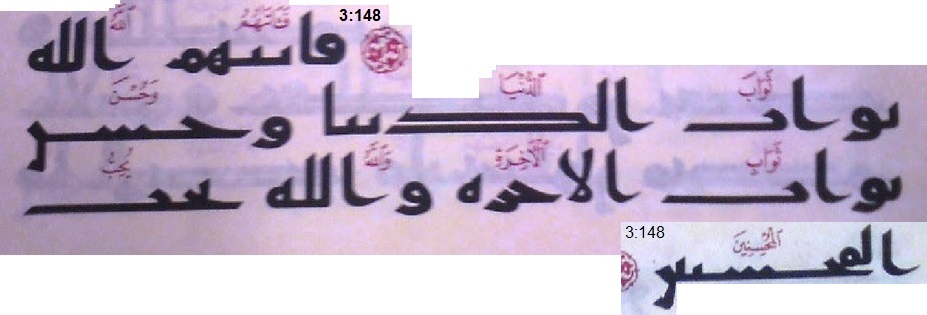 3:148
فَـَٔاتَىٰهُمُ ٱللَّهُ
فاتىهم الله
ثَوَابَ ٱلدُّنْيَا وَحُسْنَ
ثواب الدنيا وحسن
ثَوَابِ ٱلْـَٔاخِرَةِ وَٱللَّهُ يُحِبُّ
ثواب الاخره والله يحب
3:148
ٱلْمُحْسِنِينَ
المحسنين